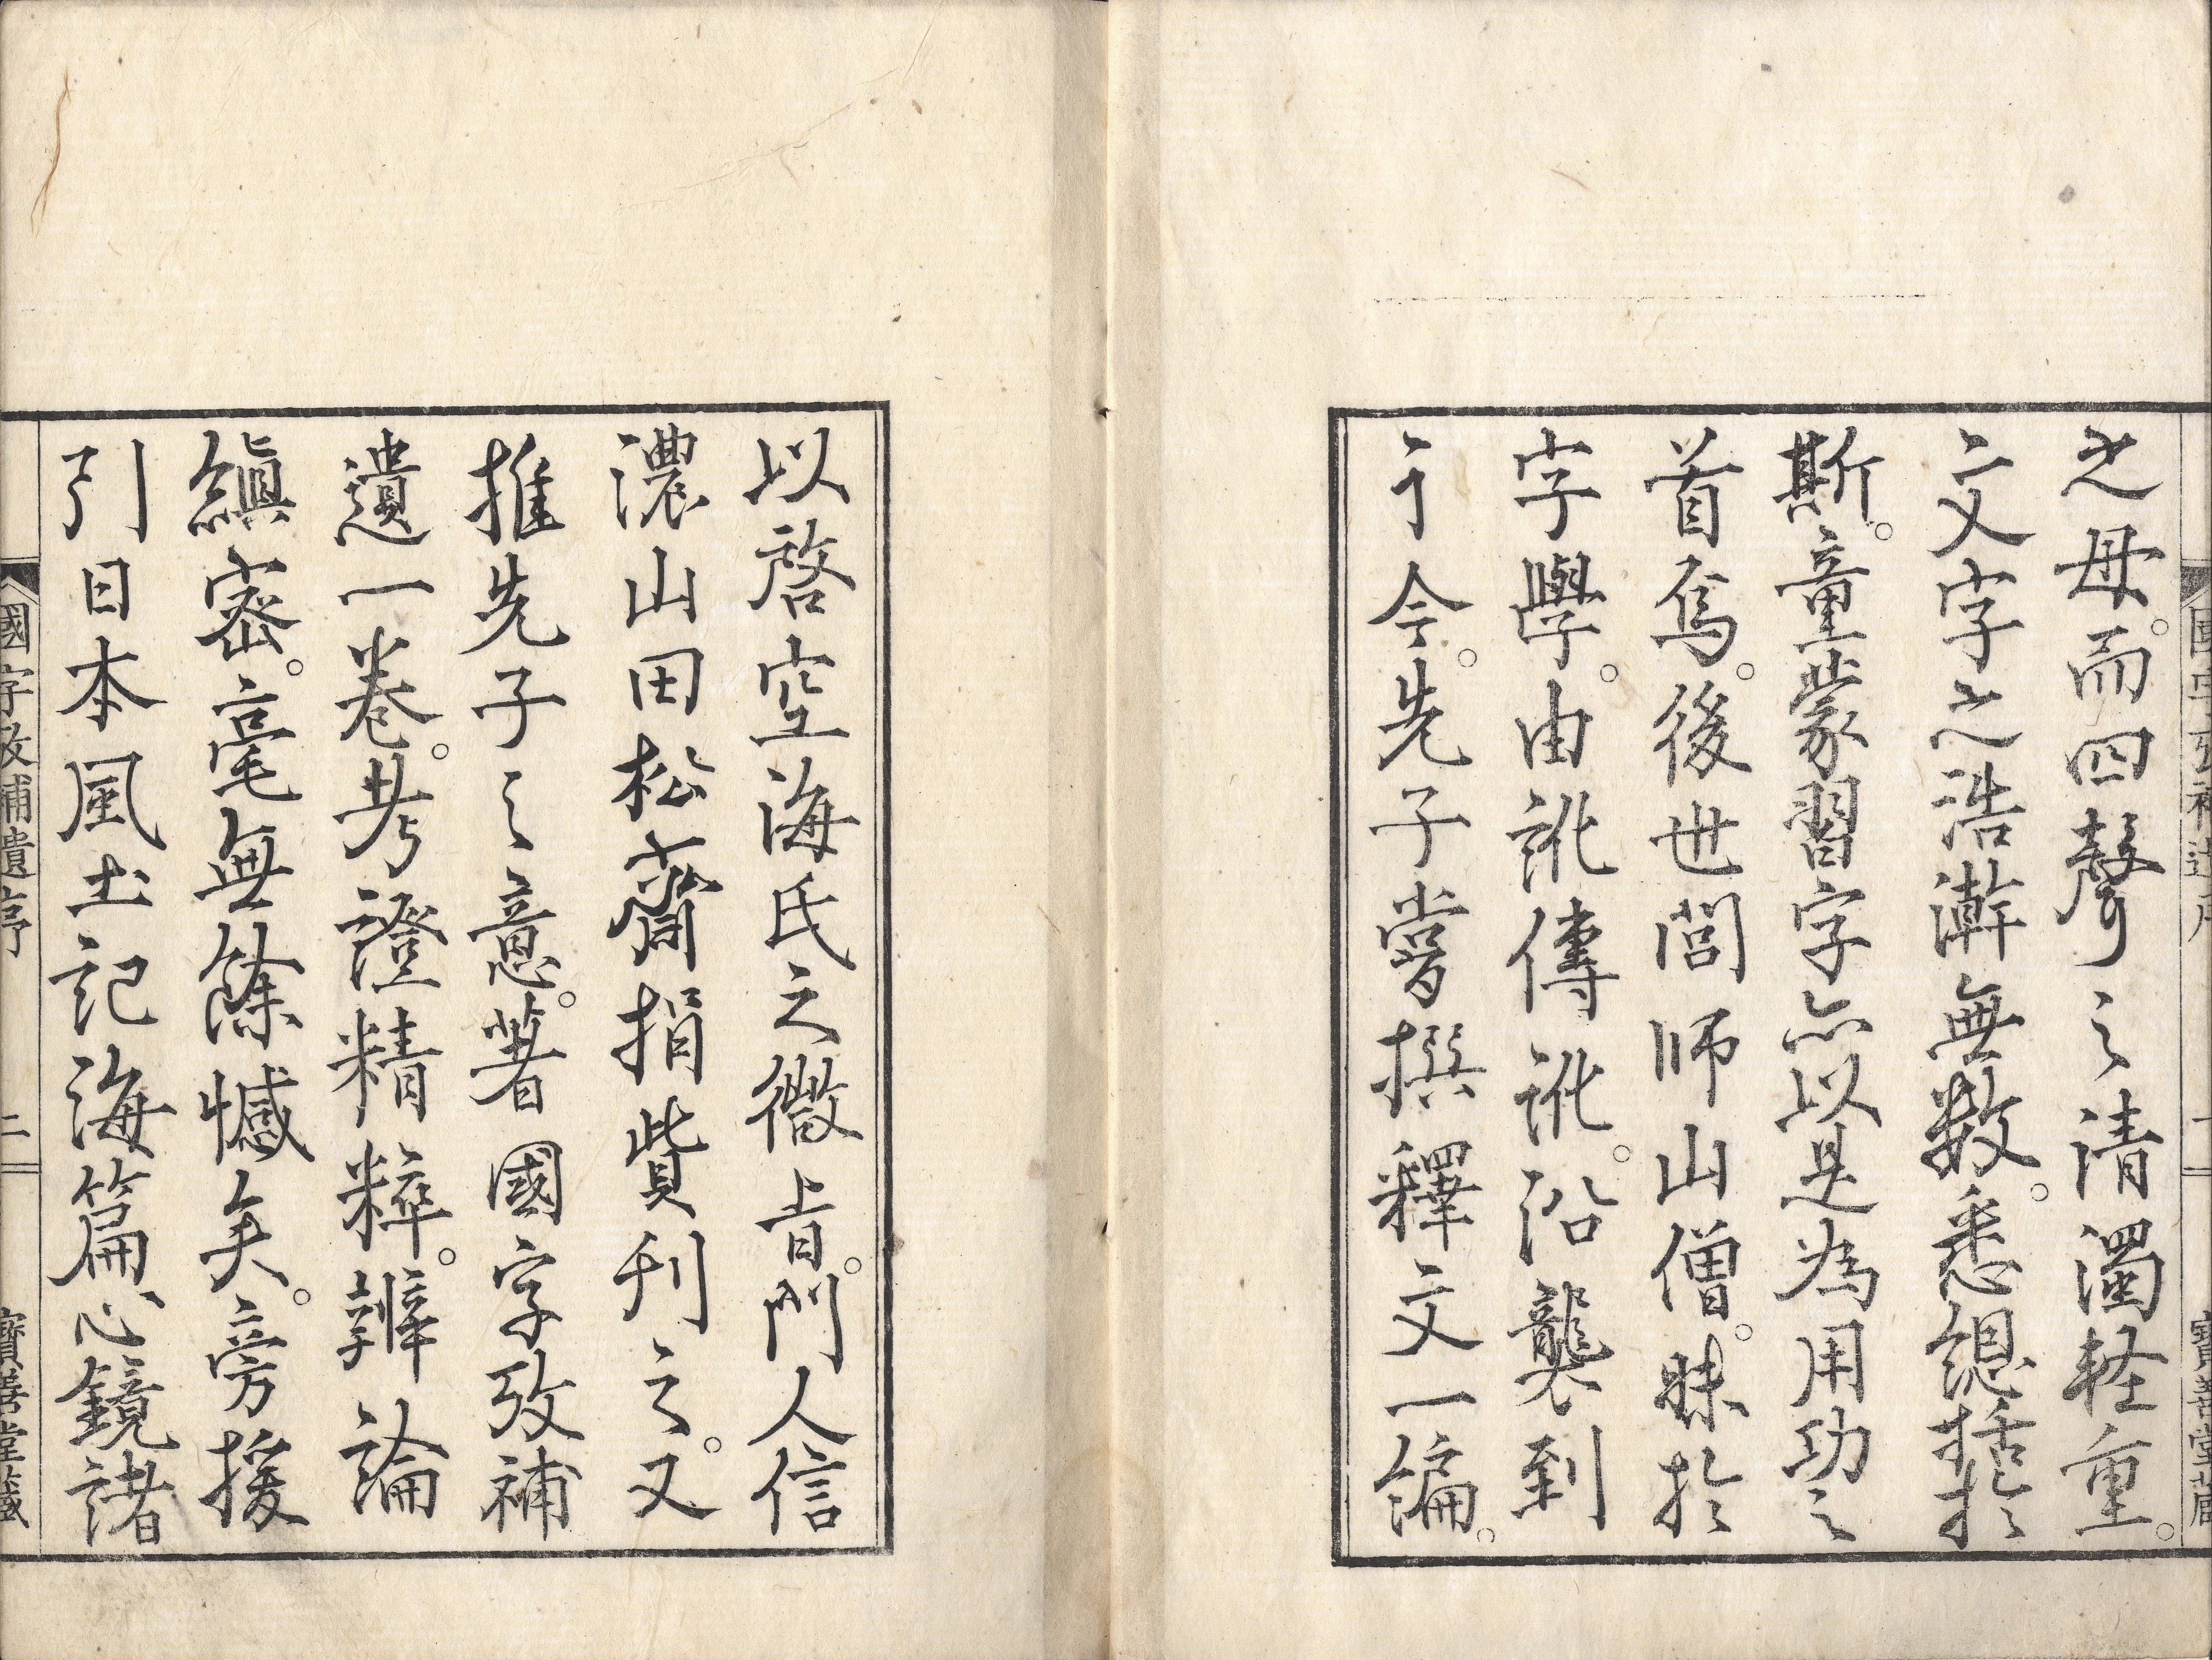 之母。而四聲之清濁軽重。
文字之浩澣無数。悉總括於
斯。童蒙習字亦以是為用功之
首焉。後世閭師山僧。昧於
字學。由訛傳訛。沿襲到
于今。先子嘗撰釋文一編。
以啓空海氏之微旨。門人信
濃山田松齋捐貲刊之。又
推先子之意。著國字攷補
遺一卷。考澄精粹。辨論
縝密。毫無餘憾矣。旁援
引日本風土記海篇心鏡諸
國字攷補遺序 二 寶善堂藏